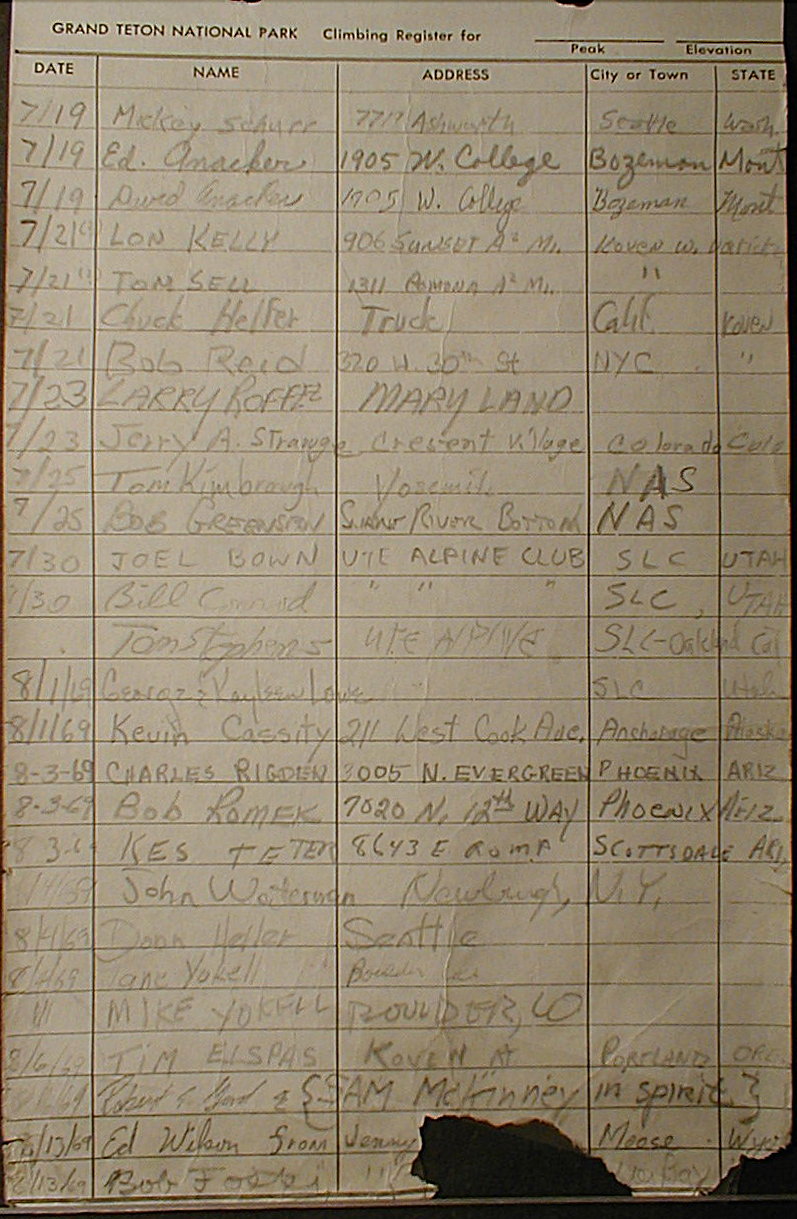 GRAND TETON NATIONAL PARK Climbing Register for
Peak Elevation
DATE NAME ADDRESS City or Town STATE
7/19 Mickey Schurr 7717 Ashworth Seattle Wash
7/19 Ed. Anacker 1905 W. College Bozeman Mont
7/19 David Anacker 1905 W. College Bozeman Mont
7/21 LON KELLY 906 SUNSET A² Mi. Koven W.
7/21 TOM SELL 1311 POMONA A² Mi. "
7/21 Chuck Truck Calif. Koven
7/21 Bob Reid 320 W. 30th St NYC "
7/23 LARRY MARYLAND
7/23 Jerry A. Crescent Village Colorado Colo
7/25 Tom Kimbrough NAS
7/25 BOB RIVER BOTTOM NAS
7/30 JOEL BOWN UTE ALPINE CLUB SLC UTAH
/30 Bill " " " SLC, UTAH
Tom Stephens UTE ALPINE SLC-Oakland Cal
8/1/69 George & Lowe " SLC Utah
8/1/69 Kevin Cassity 211 West Cook Ave. Anchorage Alaska
8-3-69 CHARLES RIGDEN 3005 N. EVERGREEN PHOENIX ARIZ
8-3-69 Bob ROMEK 7020 N. 12th WAY PHOENIX ARIZ
8 3-69 KES TETER 8643 E SCOTTSDALE ARI
/4/69 John Waterman Newburgh, N.Y.
8/4/69 Donn Heller Seattle
8/4/69 Jane Yokell Boulder
MIKE YOKELL BOULDER, CO
8/6/69 TIM ELSPAS KOVEN RT PORTLAND ORE
/69 Robert & {SAM McKinney in spirit.}
/13/69 Ed Wilson from Jenny Moose Wyo
/13/69 Bob " Bay